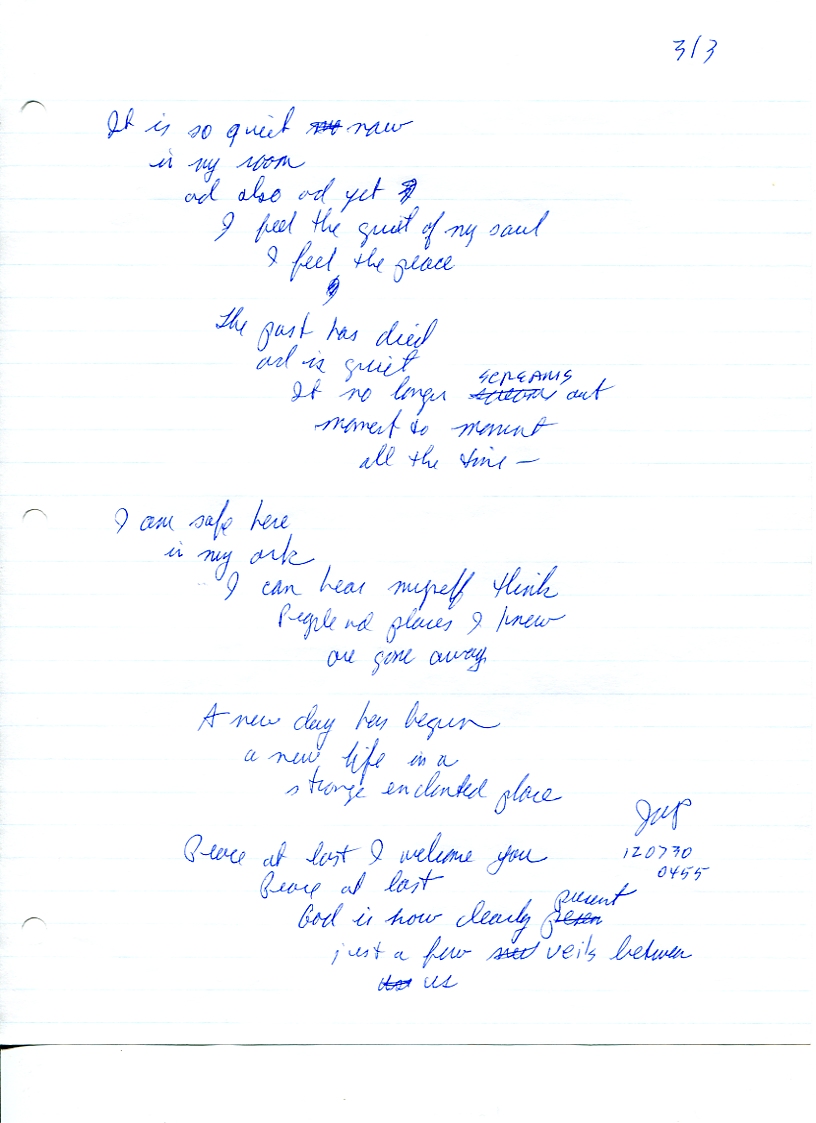 3/3
It is so quiet now
in my room
ad also ad yet
I feel the quiet of my soul
I feel the peace
The past has died
ad is quiet
It no longer SCREAMS out
moment to moment
all the time —
I am safe here
in my ark
I can hear myself think
People nd places I knew
are gone away
A new day has begun
a new life in a
strange enchanted place
Peace at last I welcome you
Peace at last
God is now clearly present
just a few veils between
us
JWP
120730
0455